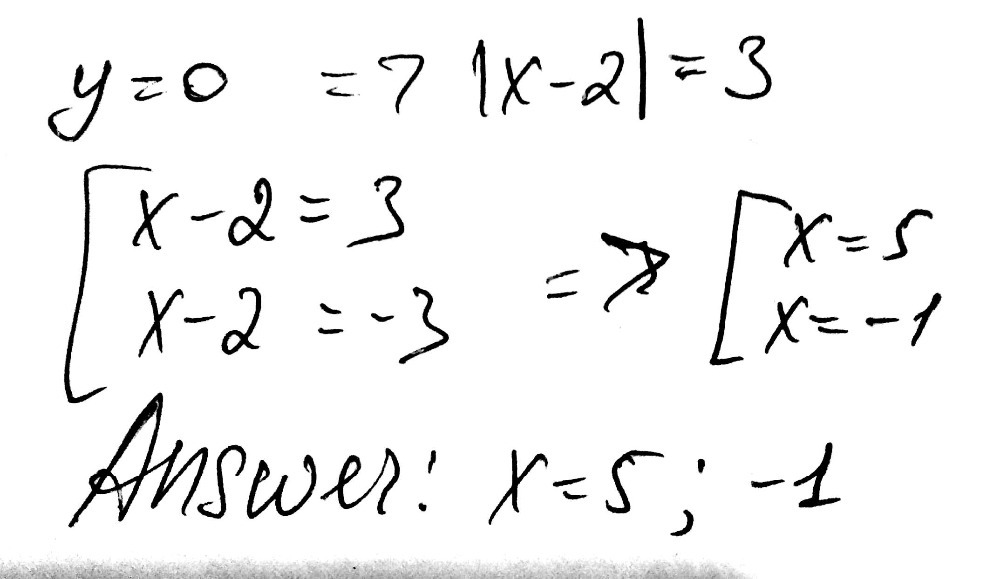 y=0 => |x-2|=3
[x-2=3 => [x=5
x-2=-3 x=-1
Answer: x=5; -1